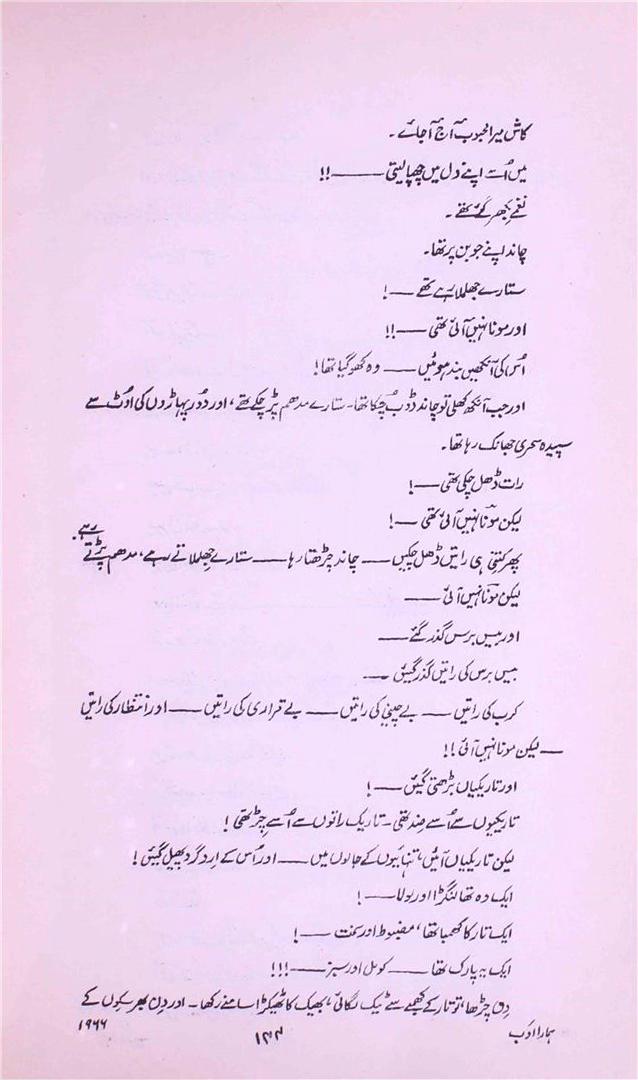 کاش میرا محبوب آج آ جائے۔
میں اُسے اپنے دل میں چھپا لیتی ——— !!
نغمے بکھر گئے تھے۔
چاند اپنے جوبن پر تھا۔
ستارے جھلملا رہے تھے —— !
اور مونا نہیں آئی تھی —— !!
اُس کی آنکھیں بند ہوئیں —— وہ کھو گیا تھا!
اور جب آنکھ کھلی تو چاند ڈوب چُکا تھا۔ ستارے مدھم پڑ چکے تھے، اور دُور پہاڑوں کی اوٹ سے
سپیدہ سحری جھانک رہا تھا۔
رات ڈھل چکی تھی —— !
لیکن مونا نہیں آئی تھی —— !
پھر کتنی ہی راتیں ڈھل چکیں —— چاند چڑھتا رہا —— ستارے جھلملاتے رہے، مدھم پڑتے رہے
لیکن مونا نہیں آئی ——
اور بیس برس گذر گئے ——
بیس برس کی راتیں گذر گئیں ——
کرب کی راتیں —— بے چینی کی راتیں —— بے قراری کی راتیں —— اور انتظار کی راتیں
—— لیکن مونا نہیں آئی !!
اور تاریکیاں بڑھتی گئیں —— !
تاریکیوں سے اُسے ضد تھی۔ تاریک راتوں سے اُسے چڑ تھی !
لیکن تاریکیاں آئیں، تنہائیوں کے جالوں میں —— اور اُس کے اِرد گرد پھیل گئیں !
ایک وہ تھا لنگڑا اور لولا —— !
ایک تار کا کھمبا تھا، مضبوط اور سخت —— !
ایک یہ پارک تھا —— کومل اور سبز —— !!!
دن چڑھا، تو تار کے کھمبے سے ٹیک لگائی، بھیک کا ٹھیکرا سامنے رکھا۔ اور دِن بھر سکوں کے
ہمارا ادب
۱۴۴
۱۹۶۶